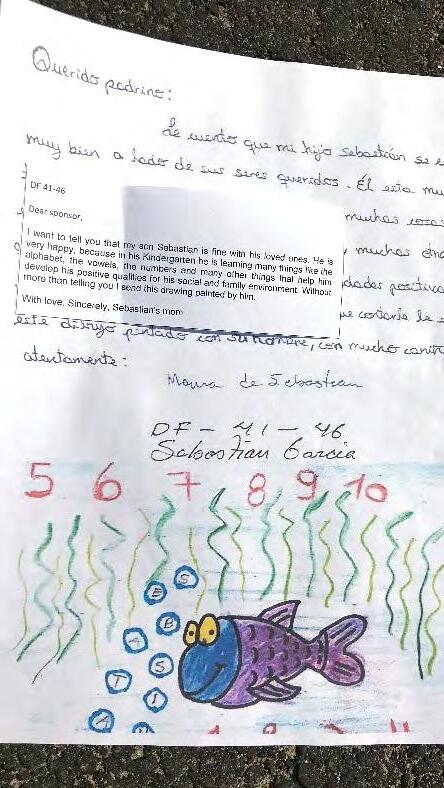 Querido padrino:
Le cuento que mi hijo Sebastián se
muy bien a lado de sus seres queridos. Él esta mu
DF 41-46
Dear sponsor,
I want to tell you that my son Sebastian is fine with his loved ones. He is
very happy, because in his Kindergarten he is learning many things like the
alphabet, the vowels, the numbers and many other things that help him
develop his positive qualities for his social and family environment. Without
more than telling you I send this drawing painted by him.
With love, Sincerely, Sebastian's mom
muchas cosas
muchas
dades positiva
ue contarle le
este dibujo pintado con su nombre, con mucho cariñ
atentamente:
Mama de Sebastian
DF - 41 - 46
Sebastian Garcia
5 6 7 8 9 10
S
E
B
A
S
T
I
A